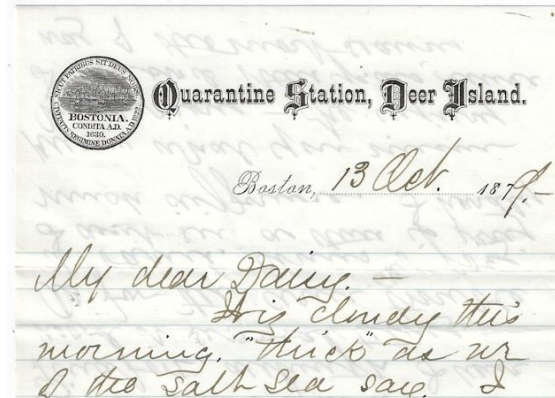 SICUT PATRIBUS SIT DEUS NOBIS
BOSTONIA.
CONDITA A.D.
1630.
CIVITATIS REGIMINE DONATA A.D. 1822.
Quarantine Station, Deer Island.
Boston, 13 Oct. 1879.-
My dear Daisy. —
It is cloudy this
morning. "thick" as we
of the salt sea say. I